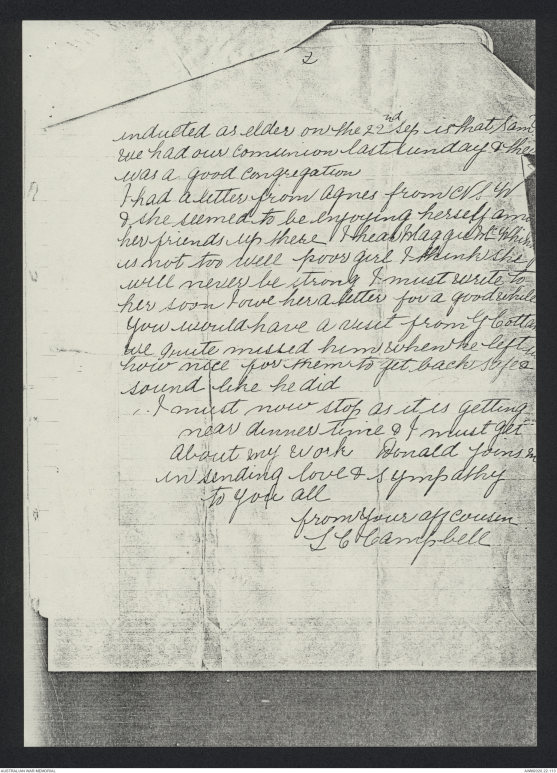 2
inducted as elder on the 22nd Sep is that Sam?
we had our comunion last sunday & there
was a good congregation
I had a letter from Agnes from N.S.W
& she seemed to be enjoying herself among
her friends up there I hear Maggie
is not too well poor girl I think she
will never be strong I must write to
her soon I owe her a letter for a good while
You would have a visit from G Cottar
we quite missed him when he left
how nice for them to get back safe &
sound like he did
I must now stop as it is getting
near dinner time & I must get
about my work Donald joins
in sending love & sympathy
to you all
from your aff cousin
L C Campbell
AUSTRALIAN WAR MEMORIAL